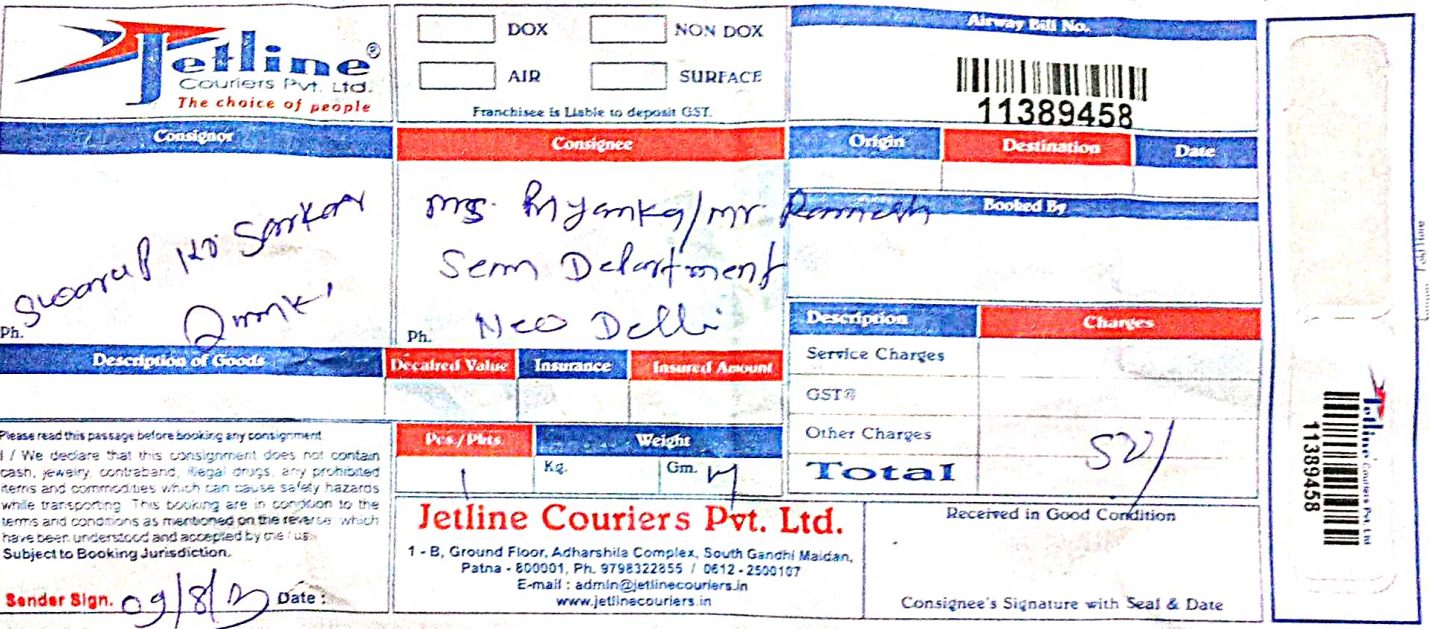 Jetline®
Couriers Pvt. Ltd.
The choice of people
DOX
NON DOX
AIR
SURFACE
Franchisee is Liable to deposit GST.
Airway Bill No.
11389458
Consignor
Sarkar
Ph.
Consignee
Ms. Priyanka/Mr. Ramesh
Department
New Delhi
Ph.
Origin
Destination
Date
Booked By
Description of Goods
Decalred Value
Insurance
Insured Amount
Description
Charges
Service Charges
GST@
Other Charges
Total
Pcs./Pkts.
Weight
1
Kg.
Gm.
Please read this passage before booking any consignment
I / We declare that this consignment does not contain
cash, jewelry, contraband, illegal drugs, any prohibited
items and commodities which can cause safety hazards
while transporting. This booking are in condition to the
terms and conditions as mentioned on the reverse which
have been understood and accepted by me / us.
Subject to Booking Jurisdiction.
Sender Sign.
Date :
Jetline Couriers Pvt. Ltd.
1 - B, Ground Floor, Adharshila Complex, South Gandhi Maidan,
Patna - 800001, Ph. 9798322855 / 0612 - 2500107
E-mail : admin@jetlinecouriers.in
www.jetlinecouriers.in
Received in Good Condition
Consignee's Signature with Seal & Date
Jetline Couriers Pvt. Ltd
11389458